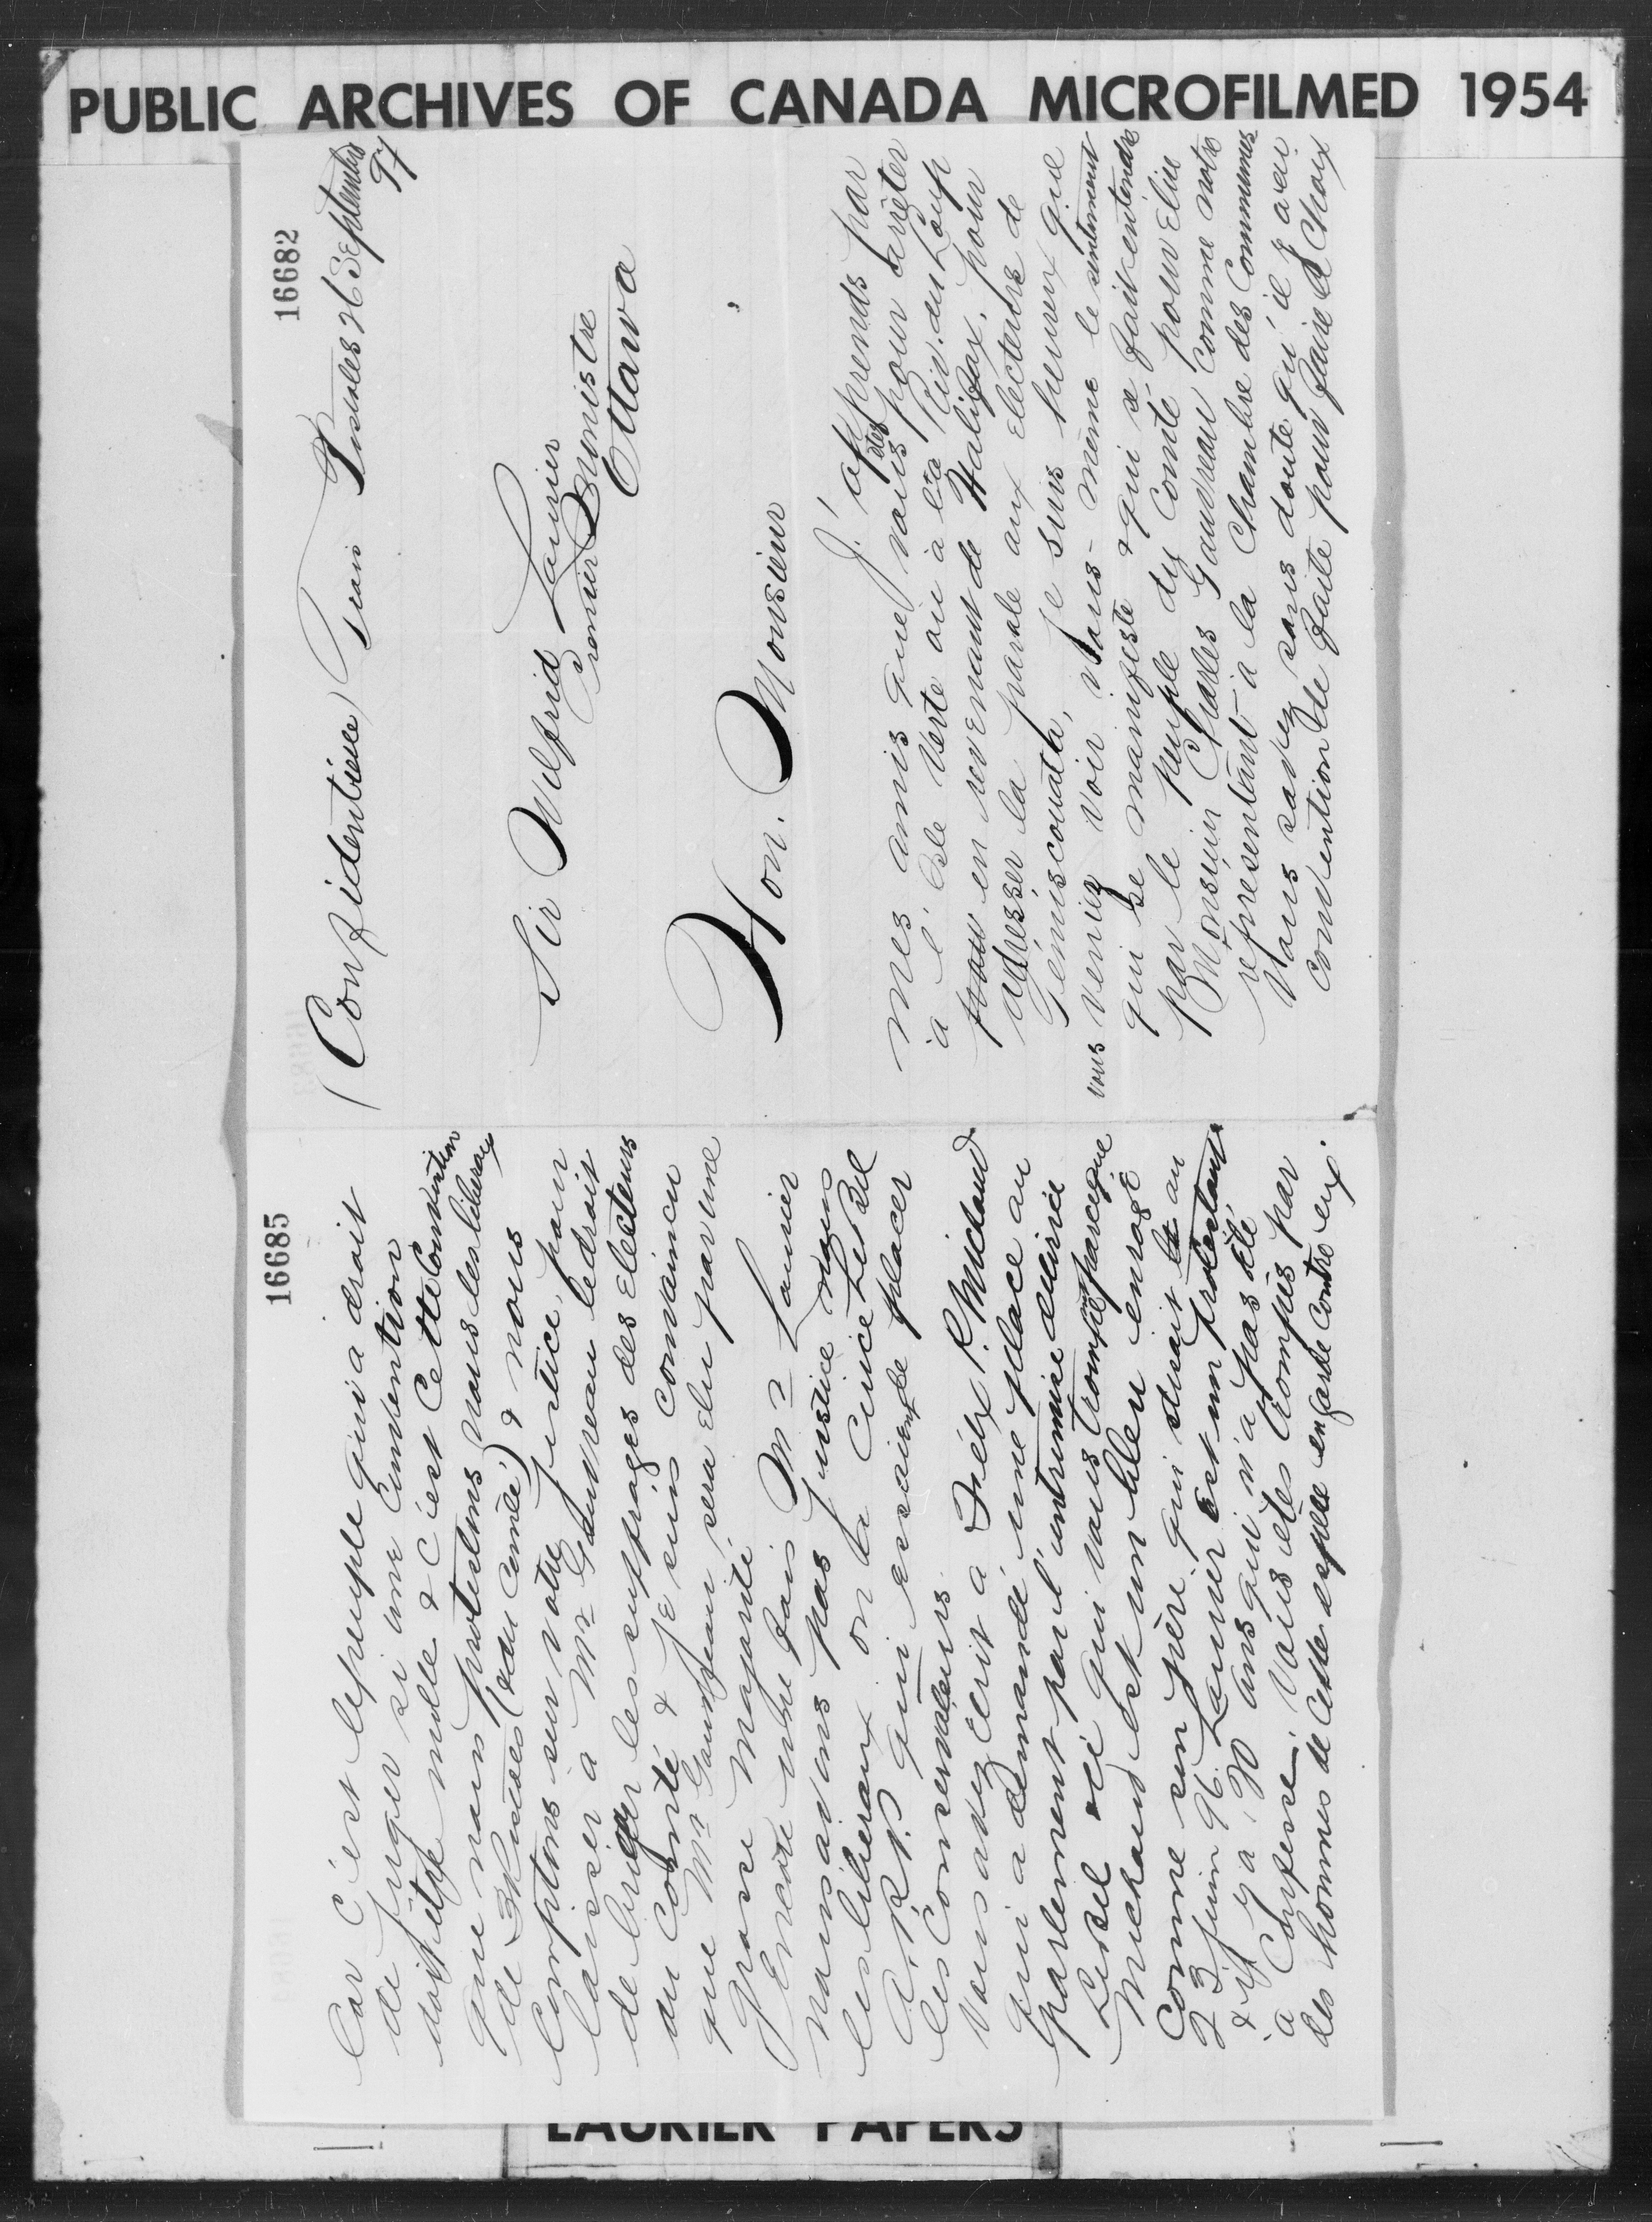 PUBLIC ARCHIVES OF CANADA MICROFILMED 1954
16682
(Confidentielle) Trois Pistoles 26 Septembre
97
Sir Wilfrid Laurier
Premier Ministre
Ottawa
Hon. Monsieur
J'apprends par
mes amis que vous êtes pour arrêter
à l'Isle Verte ou à la Riv. du Loup
en revenant de Halifax, pour
adresser la parole aux electeurs de
Témiscouata, Je suis heureux que
vous veniez voir vous-même le sentiment
qui se manifeste & qui se fait entendre
par le peuple du Comté pour Elire
Monsieur Charles Gauvreau comme notre
représentant à la Chambre des Communes
Vous savez sans doute qu'il y a eu
Convention de faite pour faire le Choix
16685
Car C'est le peuple qui a droit
de juger si une Convention
doit être nulle & C'est Cette Convention
que nous protestons nous les libéraux
de (du Comté) & nous
Comptons sur votre justice, pour
laisser à Mr Gauvreau le droit
de briguer les suffrages des Electeurs
du Comté & je suis Convaincu
que Mr Gauvreau sera élu par une
grosse majorité
Encore une fois Mr Laurier
nous avons pas justice nous
les libéraux on a
A.R.P. qui essaient de placer
les Conservateurs.
Vous avez écrit à Félix P. Michaud
qui a demandé une place au
parlement par l'entremise du Curé
LeBel et qui vous trompe parceque
Michaud est un bleu enragé
Comme son père, qui disait le au
23 juin 96 Laurier Est un protestant
& il y a 20 ans qui n'a pas été
à Confesse. Vous êtes trompés par
des hommes de Cette espèce en garde contre eux.
LAURIER PAPERS